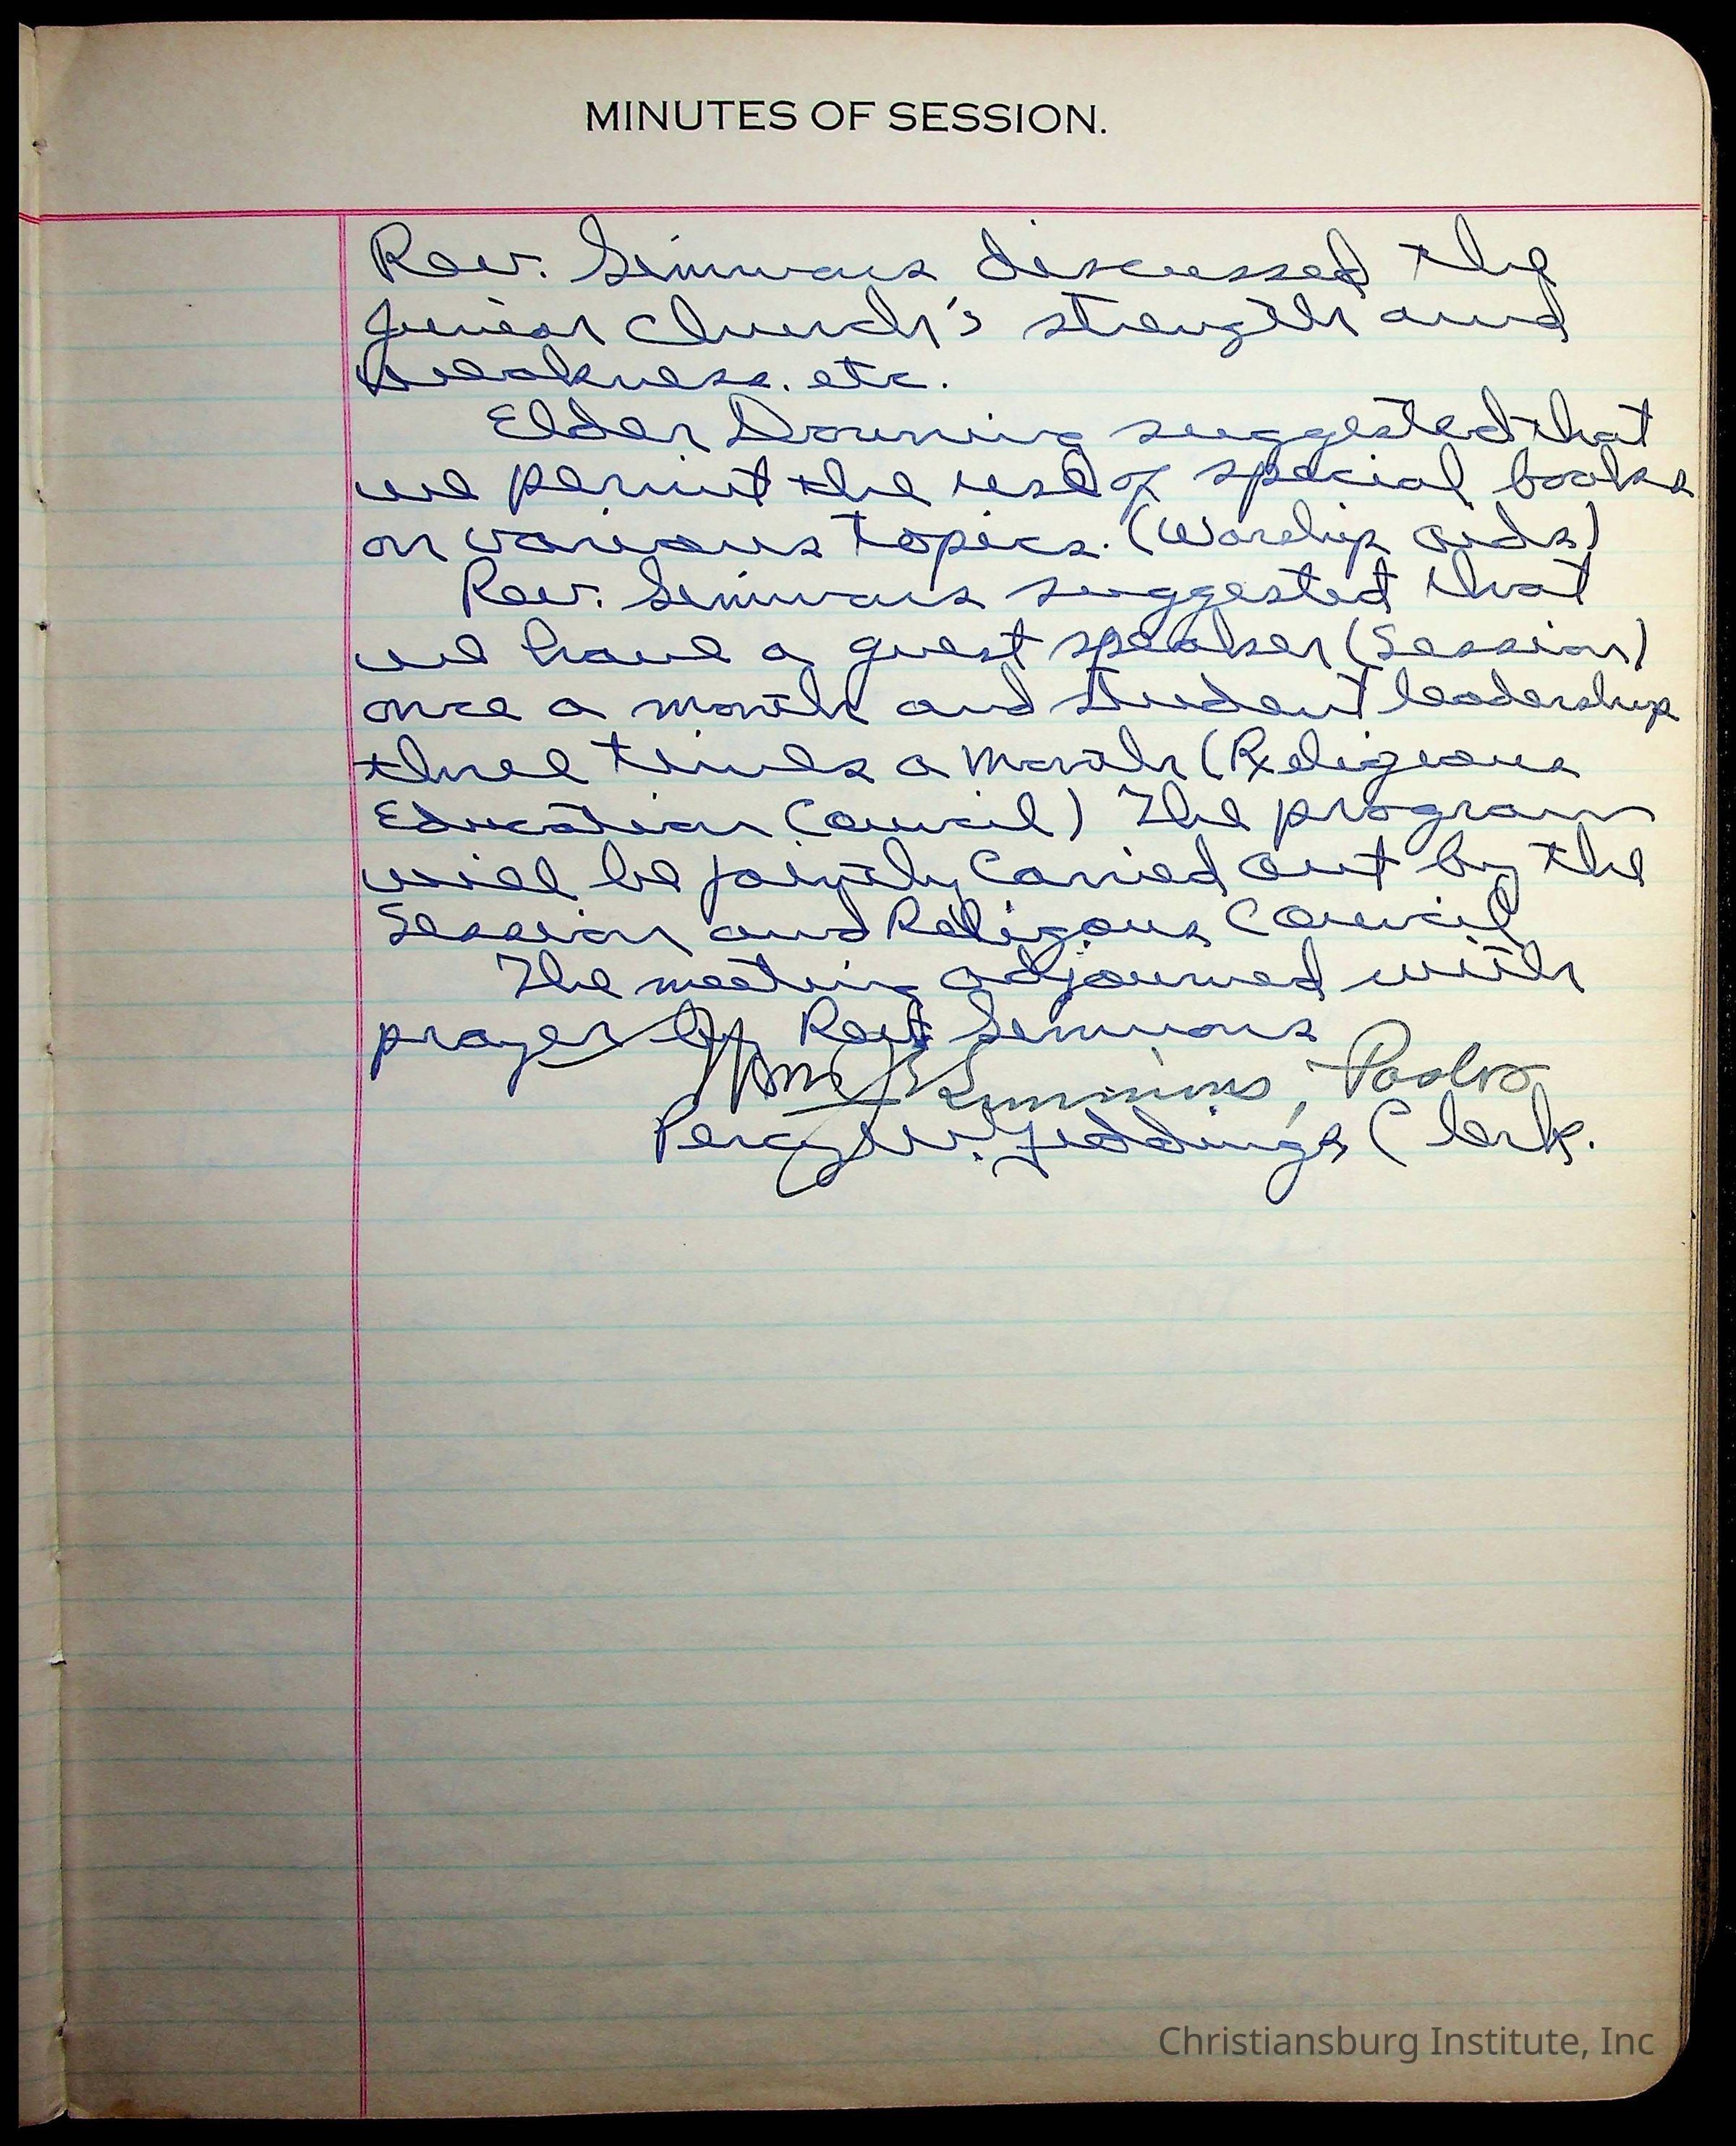 MINUTES OF SESSION.
Rev. Simmons discussed the
Junior Church's strength and
weakness. etc.
Elder Downing suggested that
we permit the use of special books
on various topics. (Worship aids)
Rev. Simmons suggested that
we have a guest speaker (Session)
once a month and student leadership
three times a month (Religious
Education Council) The program
will be jointly carried out by the
Session and Religous Council
The meeting adjourned with
prayer by Rev. Simmons
Simmons, Pastor
Percy W. Giddings Clerk.
Christiansburg Institute, Inc